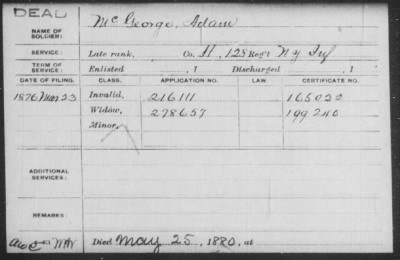 DEAD
NAME OF SOLDIER: McGeorge, Adam
SERVICE: Late rank, Co. H, 128 Reg't N Y Inf
TERM OF SERVICE: Enlisted , 1 Discharged , 1
DATE OF FILING. CLASS. APPLICATION NO. LAW. CERTIFICATE NO.
1876 Mar 23 Invalid, 216111 165022
Widow, 278657 199240
Minor,
ADDITIONAL SERVICES:
REMARKS:
Died May 25, 1880, at